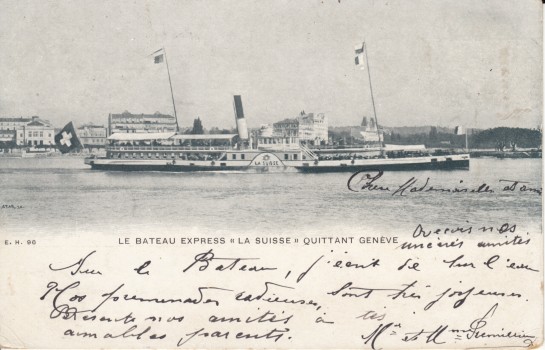 LA SUISSE
Chère Mademoiselle et amie
E. H. 96
LE BATEAU EXPRESS « LA SUISSE » QUITTANT GENÈVE
Recevez nos
sincères amitiés
Sur le Bateau, j'écrit de sur l'eau
Nos promenades radieuses, sont très joyeuses.
Présente nos amitiés à tes
aimables parents.
Mr et Mme